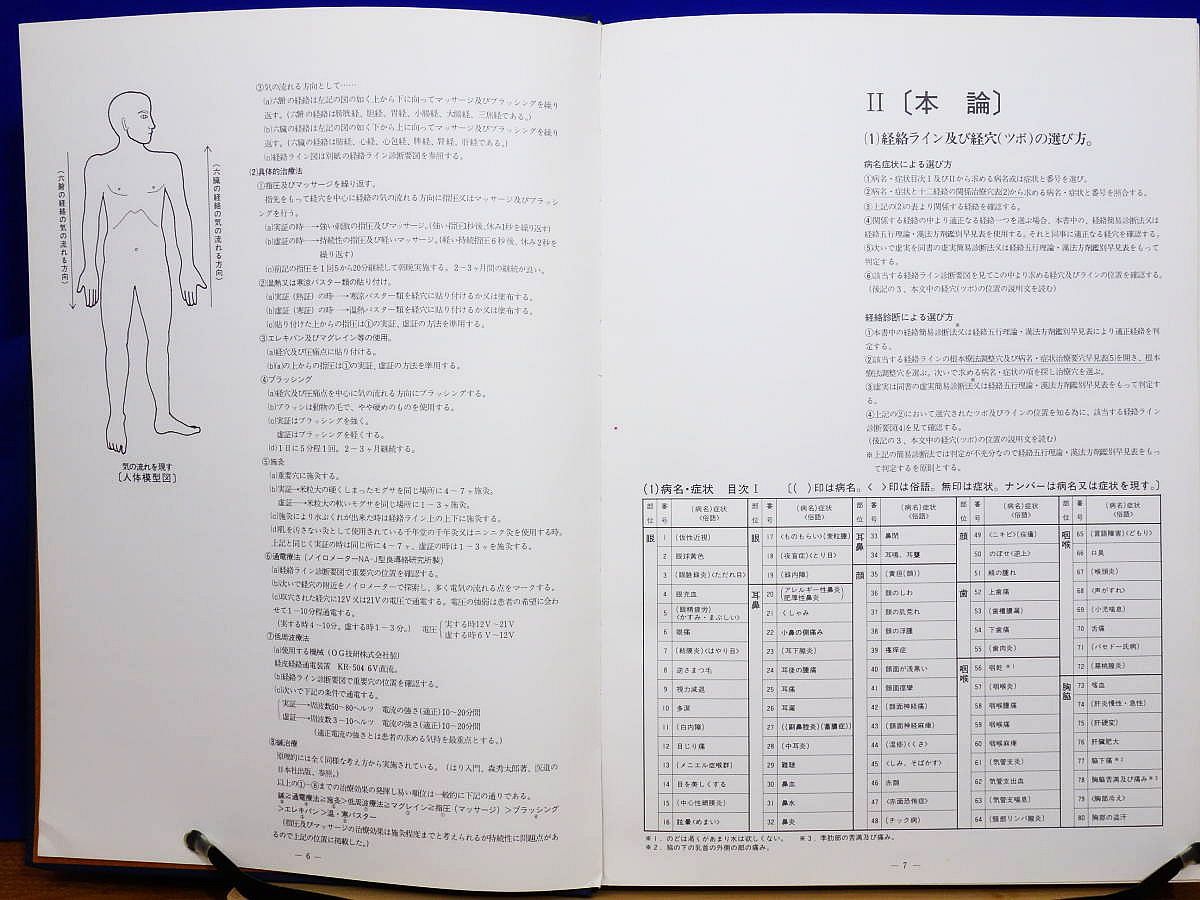 (六腑の経絡の気の流れる方向)
(六臓の経絡の気の流れる方向)
気の流れを現す
〔人体模型図〕
③気の流れる方向として……
(a)六腑の経絡は左記の図の如く上から下に向ってマッサージ及びブラッシングを繰り
返す。(六腑の経絡は膀胱経、胆経、胃経、小腸経、大腸経、三焦経である。)
(b)六臓の経絡は左記の図の如く下から上に向ってマッサージ及びブラッシングを繰り
返す。(六臓の経絡は肺経、心経、心包経、脾経、腎経、肝経である。)
(c)経絡ライン図は別紙の経絡ライン診断要図を参照する。
(2)具体的治療法
①指圧及びマッサージを繰り返す。
指先をもって経穴を中心に経絡の気の流れる方向に指圧又はマッサージ及びブラッシ
ングを行う。
(a)実証の時─→強い刺激の指圧及びマッサージ。(強い指圧1秒後、休み1秒を繰り返す)
(b)虚証の時─→持続性の指圧及び軽いマッサージ。(軽い持続指圧6秒後、休み2秒を
繰り返す)
(c)前記の指圧を1回5から20分継続して朝晩実施する。2〜3ヶ月間の継続が良い。
②温熱又は寒涼パスター類の貼り付け。
(a)実証(熱証)の時─→寒涼パスター類を経穴に貼り付けるか又は塗布する。
(b)虚証(寒証)の時─→温熱パスター類を経穴に貼り付けるか又は塗布する。
(c)貼り付けた上からの指圧は①の実証、虚証の方法を準用する。
③エレキバン及びマグレイン等の使用。
(a)経穴及び圧痛点に貼り付ける。
(b)(a)の上からの指圧は①の実証、虚証の方法を準用する。
④ブラッシング
(a)経穴及び圧痛点を中心に気の流れる方向にブラッシングする。
(b)ブラッシは動物の毛で、やや硬めのものを使用する。
(c)実証はブラッシングを強く。
虚証はブラッシングを軽くする。
(d)1日に5分程1回。2〜3ヶ月継続する。
⑤施灸
(a)重要穴に施灸する。
(b)実証─→米粒大の硬くしまったモグサを同じ場所に4〜7ヶ施灸。
虚証─→米粒大の軟いモグサを同じ場所に1〜3ヶ施灸。
(c)施灸により水ぶくれが出来た時は経絡ライン上の上下に施灸する。
(d)肌を汚さない灸として使用されている千年堂の千年灸又はニンニク灸を使用する時。
上記と同じく実証の時は同じ所に4〜7ヶ、虚証の時は1〜3ヶを施灸する。
⑥通電療法(ノイロメーターNA-J型良導絡研究所製)
(a)経絡ライン診断要図で重要穴の位置を確認する。
(b)次いで経穴の附近をノイロメーターで探索し、多く電気の流れる点をマークする。
(c)取穴された経穴に12V又は21Vの電圧で通電する。電圧の強弱は患者の希望に合わ
せて1〜10分程通電する。
(実する時4〜10分。虚する時1〜3分。) 電圧 実する時12V〜21V
虚する時6V〜12V
⑦低周波療法
(a)使用する機械(OG技研株式会社製)
経皮経絡通電装置 KR-504 6V直流。
(b)経絡ライン診断要図で重要穴の位置を確認する。
(c)次いで下記の条件で通電する。
実証─→周波数50〜80ヘルツ 電流の強さ(適正)10〜20分間
虚証─→周波数3〜10ヘルツ 電流の強さ(適正)10〜20分間
(適正電流の強さとは患者の求める気持を最重点とする。)
⑧鍼治療
原理的には全く同様な考え方から実施されている。(はり入門、森秀太郎著、医道の
日本社出版、参照。)
以上の①〜⑧までの治療効果の発揮し易い順位は一般的に下記の通りである。
鍼≧通電療法≧施灸>低周波療法≧マグレイン≧指圧(マッサージ)>ブラッシング
>エレキバン>温・寒パスター
(指圧及びマッサージの治療効果は施灸程度までと考えられるが持続性に問題点があ
るので上記の位置に掲載した。)
― 6 ―
II〔本 論〕
(1)経絡ライン及び経穴(ツボ)の選び方。
病名症状による選び方
①病名・症状目次I及びIIから求める病名或は症状と番号を選び。
②病名・症状と十二経絡の関係治療穴表(2)から求める病名・症状と番号を照合する。
③上記の(2)の表より関係する経絡を確認する。
④関係する経絡の中より適正なる経絡一つを選ぶ場合、本書中の、経絡簡易診断法又は
経絡五行理論・漢法方剤鑑別早見表を使用する。それと同事に適正なる経穴を確認する。
⑤次いで虚実を同書の虚実簡易診断法又は経絡五行理論・漢法方剤鑑別早見表をもって
判定する。
⑥該当する経絡ライン診断要図を見てこの中より求める経穴及びラインの位置を確認する。
(後記の3、本文中の経穴(ツボ)の位置の説明文を読む)
経絡診断による選び方
①本書中の経絡簡易診断法※又は経絡五行理論・漢法方剤鑑別早見表により適正経絡を判
定する。
②該当する経絡ラインの根本療法調整穴及び病名・症状治療要穴早見表(5)を開き、根本
療法調整穴を選ぶ。次いで求める病名・症状の項を探し治療穴を選ぶ。
③虚実は同書の虚実簡易診断法※又は経絡五行理論・漢法方剤鑑別早見表をもって判定す
る。
④上記の②において選穴されたツボ及びラインの位置を知る為に、該当する経絡ライン
診断要図(4)を見て確認する。
(後記の3、本文中の経穴(ツボ)の位置の説明文を読む)
※上記の簡易診断法では判定が不充分なので経絡五行理論・漢法方剤鑑別早見表をもっ
て判定するを原則とする。
(1)病名・症状 目次I 〔( )印は病名。< >印は俗語。無印は症状。ナンバーは病名又は症状を現す。〕
部位 番号 (病名)症状<俗語> 部位 番号 (病名)症状<俗語> 部位 番号 (病名)症状<俗語> 部位 番号 (病名)症状<俗語> 部位 番号 (病名)症状<俗語>
眼 1 (仮性近視) 眼 17 <ものもらい>(麦粒腫) 耳鼻 33 鼻閉 顔 49 <ニキビ>(痤瘡) 咽喉 65 (言語障害)<どもり>
2 眼球黄色 18 (夜盲症)<とり目> 34 耳鳴、耳聾 50 のぼせ<逆上> 66 口臭
3 (眼瞼縁炎)<ただれ目> 19 (緑内障) 顔 35 (黄疸(顔)) 51 頬の腫れ 67 (喉頭炎)
4 眼充血 耳鼻 20 (アレルギー性鼻炎)(肥厚性鼻炎) 36 顔のしわ 歯 52 上歯痛 68 <声がすれ>
5 (眼精疲労)<かすみ・まぶしい> 21 くしゃみ 37 顔の肌荒れ 53 (歯槽膿漏) 69 (小児喘息)
6 眼痛 22 小鼻の側痛み 38 顔の浮腫 54 下歯痛 70 舌痛
7 (結膜炎)<はやり目> 23 (耳下腺炎) 39 瘙痒症 55 (歯肉炎) 71 (バセドー氏病)
8 逆さまつ毛 24 耳後の腫痛 40 顔面が浅黒い 咽喉 56 咽乾※1 72 (扁桃腺炎)
9 視力減退 25 耳痛 41 顔面痙攣 57 (咽喉炎) 胸脇 73 喀血
10 多涙 26 耳漏 42 (顔面神経痛) 58 咽喉腫痛 74 (肝炎慢性・急性)
11 (白内障) 27 ((副鼻腔炎)<蓄膿症>) 43 (顔面神経麻痺) 59 咽喉痛 75 (肝硬変)
12 目じり痛 28 (中耳炎) 44 (湿疹)<くさ> 60 咽喉麻痺 76 肝臓肥大
13 (メニエル症候群) 29 難聴 45 <しみ、そばかす> 61 (気管支炎) 77 脇下痛※2
14 目を美しくする 30 鼻血 46 赤顔 62 気管支出血 78 胸脇苦満及び痛み※3
15 (中心性網膜炎) 31 鼻水 47 (赤面恐怖症) 63 (気管支喘息) 79 <胸部冷え>
16 眩暈<めまい> 32 鼻炎 48 (チック病) 64 (頸部リンパ腺炎) 80 胸部の盗汗
※1. のどは渇くがあまり水は欲しくない。 ※3. 季肋部の苦満及び痛み。
※2. 脇の下の乳首の外側の部の痛み。
― 7 ―